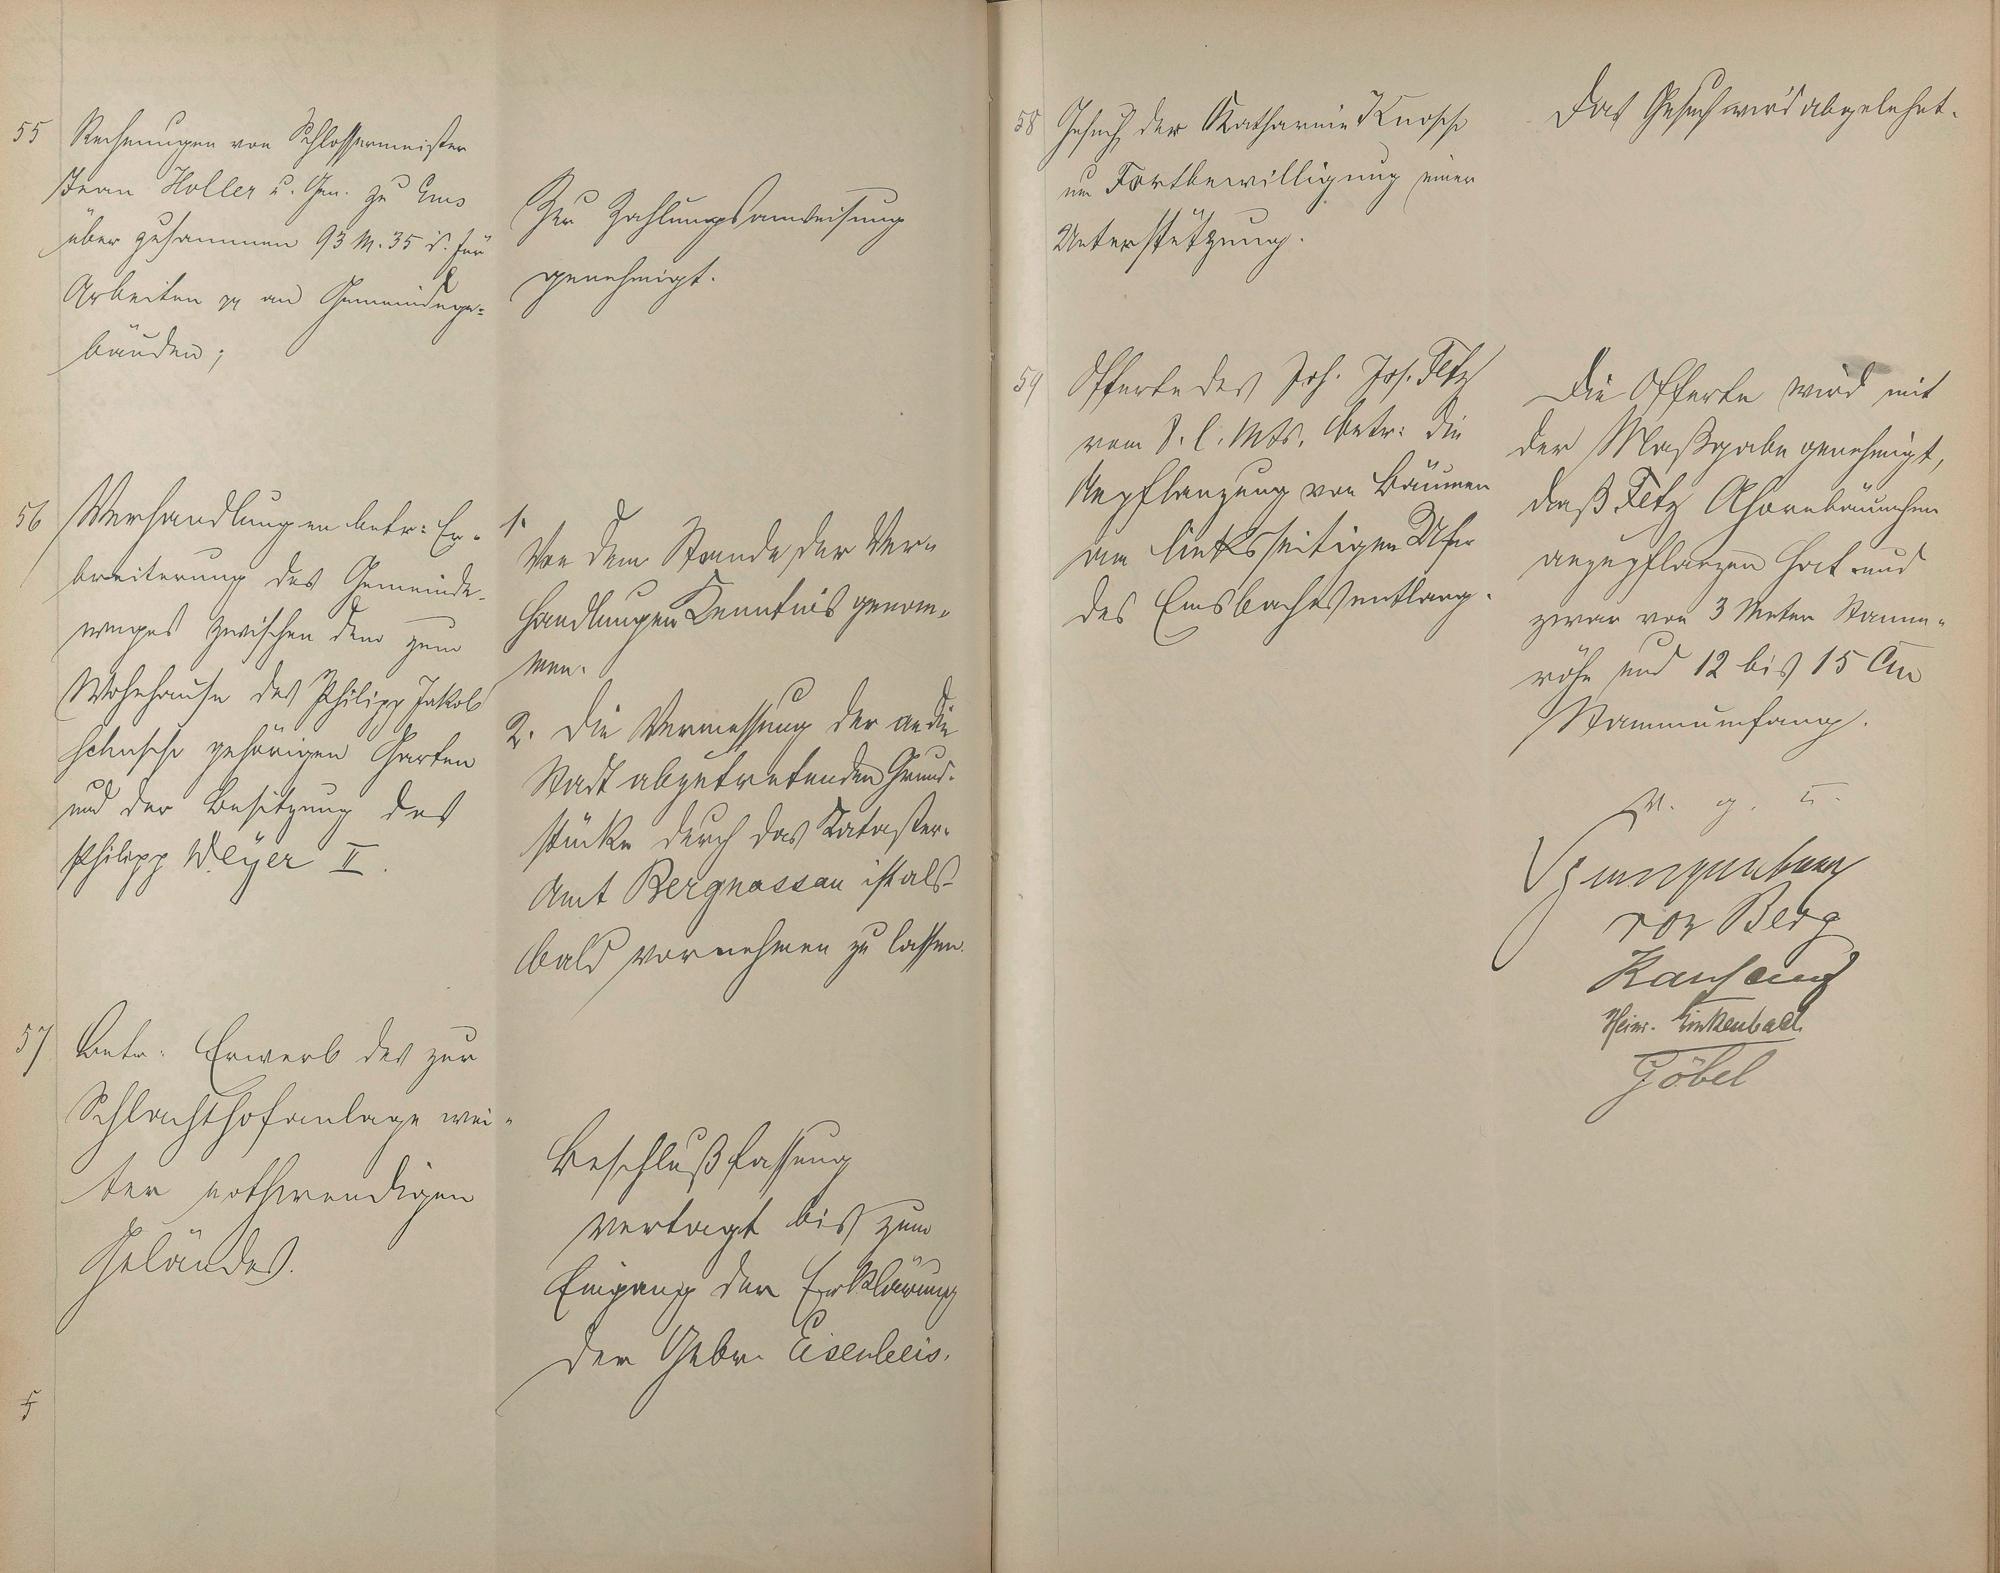 55
Rechnungen von Schlossermeister
Jean Holler u. Gen. zu Ems
über zusammen 93 M. 35 d. für
Arbeiten pp an Gemeindege-
bäuden;
Zur Zahlungsanweisung
genehmigt.
56
Verhandlungen betr: Er-
breiterung des Gemeinde-
weges zwischen dem zum
Wohnhause des Philipp Jakob
gehörigen Garten
und der Besitzung des
Philipp Weyer II.
1.
Von dem Stande der Ver-
handlungen Kenntnis genom-
men.
2. Die Vermessung der an die
Stadt abzutretenden Grund-
stücke durch das Kataster-
Amt Bergnassau ist als-
bald vornehmen zu lassen.
57
Betr. Erwerb des zur
Schlachthofanlage wei-
ter nothwendigen
Geländes.
Beschlußfassung
vertagt bis zum
Eingang der Erklärung
der Gebr. Eisenbeis.
5
58
Gesuch der Katharine
um Fortbewilligung einer
Unterstützung.
Das Gesuch wird abgelehnt.
59
Offerte des Joh. Jos. Fetz
vom 8. l. Mts. betr: die
Anpflanzung von Bäumen
am linksseitigen Ufer
des Emsbaches entlang.
Die Offerte wird mit
der Maßgabe genehmigt,
daß Fetz Ahornbäumchen
anzupflanzen hat und
zwar von 3 Meter Stamm-
höhe und 12 bis 15 Cm
Stammumfang.
v. g. u.
Spangenberg
von Berg
Heinr. Linkenbach
Göbel